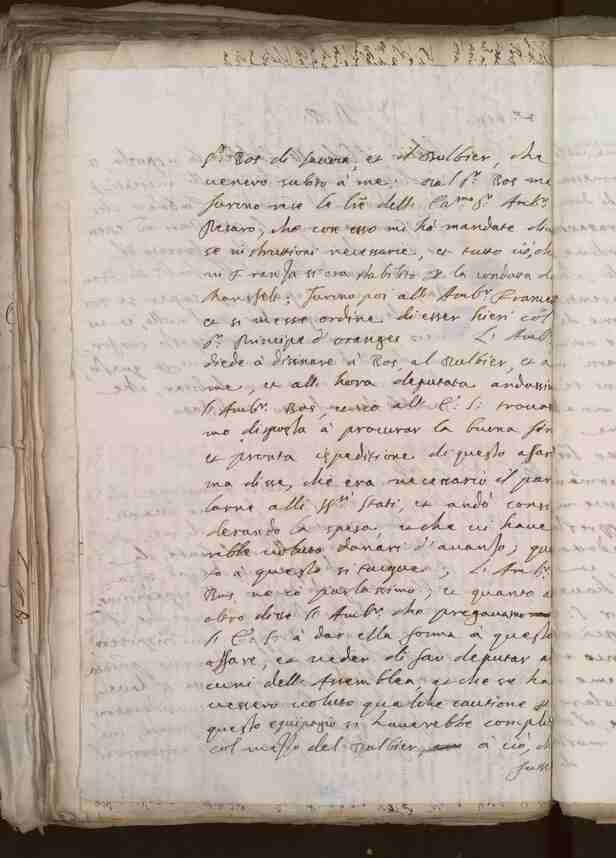 S.r Bos di Savoia, et il Bulbier, che
venero subito à me. Dal S.r Bos me
furino rese le l're dell Ca.mo S.r Amb.r
Pesaro, che con esso mi hà mandate
se instruttioni necessarie, et tutto ciò, ch
in Franza si era stabilito p la condota d
Furino poi all Amb.r France
et si messe ordine di esser hieri col
S.r Principe d'Oranges L'Amb.
diede à disinare à Bos, al Bulbier, et a
me, et all hora deputata andassi
l'Amb.r Bos, et io all E. S. trova
mo disposta à procurar la buona
et pronta espeditione di questo affar
ma disse, che era necessario il par
larne alli SS.ri Stati, et andò consi
derando la spesa, et che vi have
rebbe voluto danari d'avanzo; qu
to à questo si tacque; L'Amb.r
Bos, ne io parlassimo; et quanto a
altro disse l'Amb.r che pregavamo
S. E. à dar ella forma à quest
affare, et veder di far deputar a
cuni dell Assemblea, et che se ha
vessero voluto qualche cautione
questo equipagio si haverebbe compli
col mezo del Bulbier, à ciò, ch
fuss